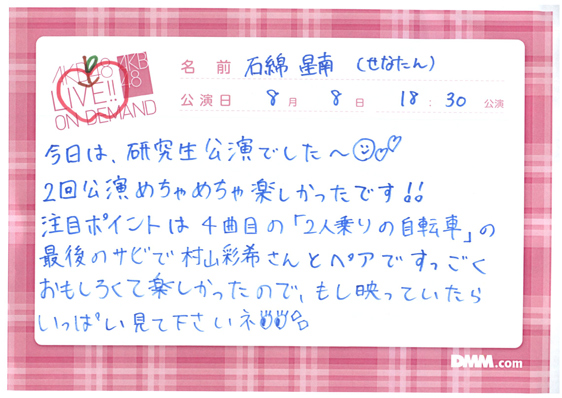 AKB48 AKB48
LIVE!!
ON DEMAND
名前 石綿 星南 (せなたん)
公演日 8月 8日 18:30 公演
今日は、研究生公演でした〜
2回公演めちゃめちゃ楽しかったです!!
注目ポイントは4曲目の「2人乗りの自転車」の
最後のサビで村山彩希さんとペアですっごく
おもしろくて楽しかったので、もし映っていたら
いっぱい見て下さいネ
DMM.com